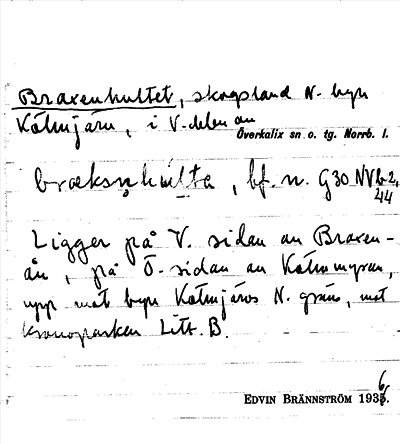 Braxenhultet, skogsland N. byn
Kölmjärv, i V-delen av
Överkalix sn o. tg. Norrb. l.
bræksn̥hulta, bf. n. G30 NV b2,
44
Ligger på V. sidan av Braxen-
ån, på Ö-sidan av Kölmmyran,
upp mot byn Kölmjärvs N. gräns, mot
kronoparken Litt. B.
EDVIN BRÄNNSTRÖM 1936.